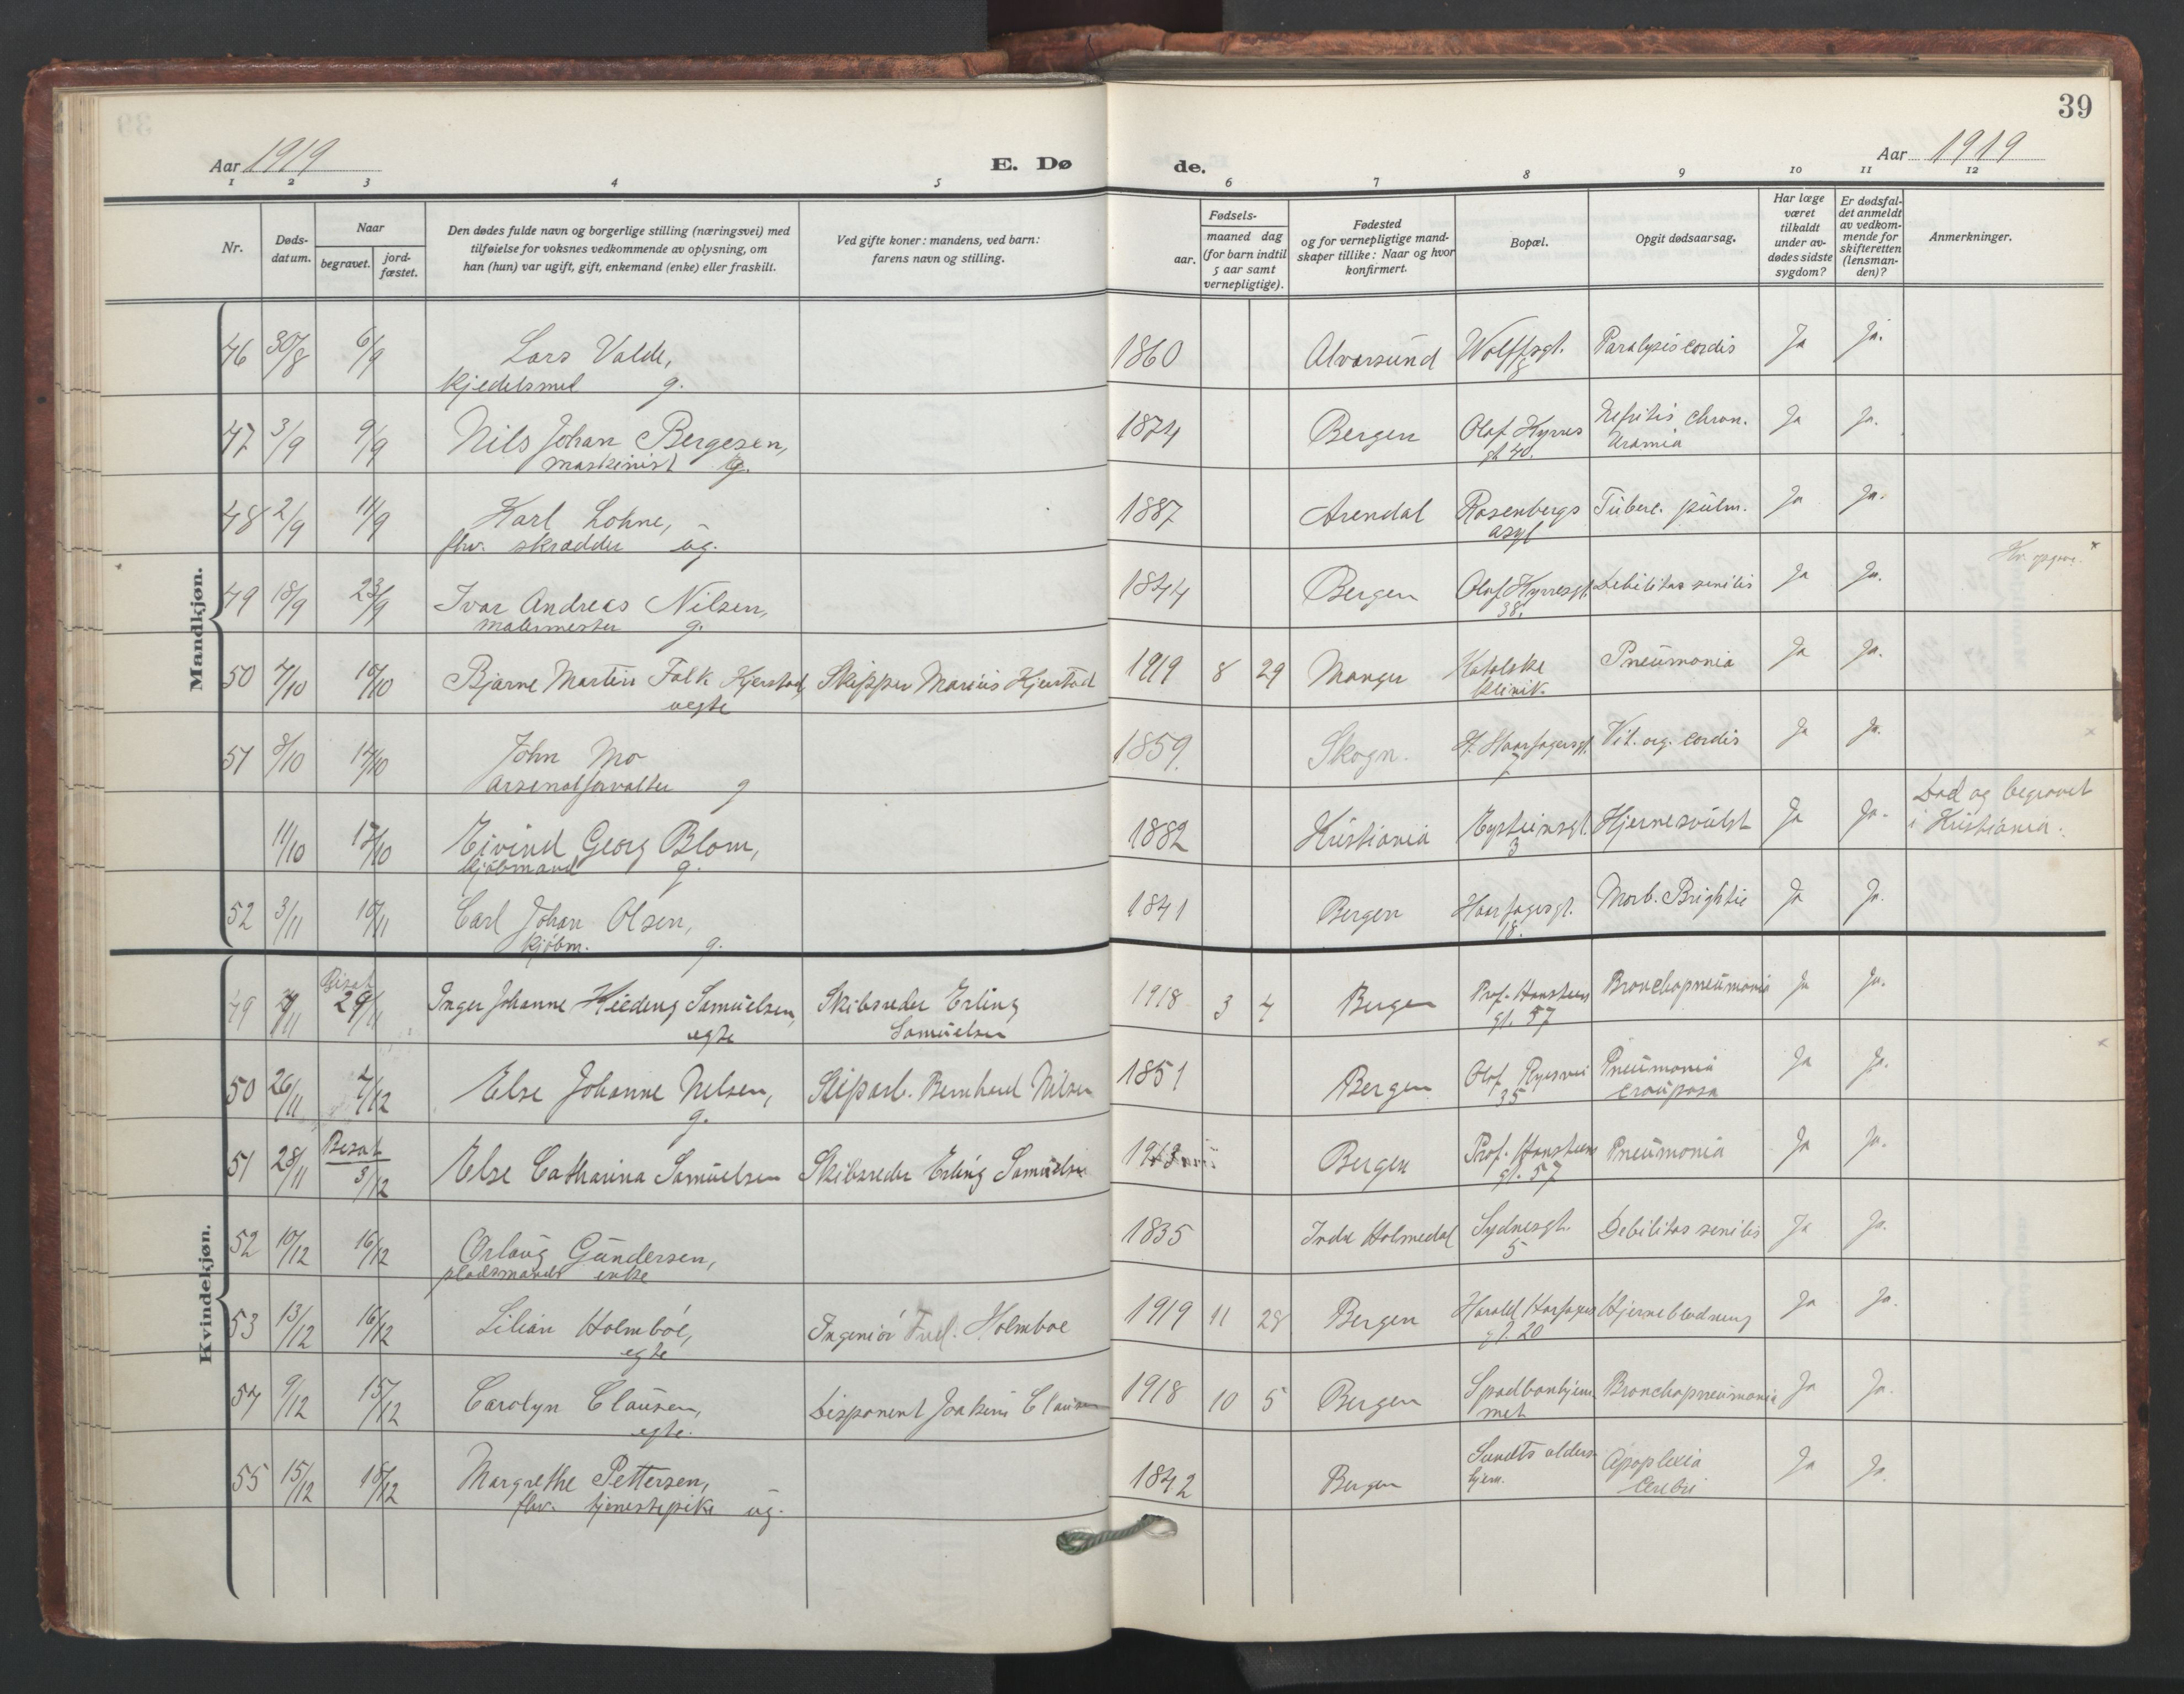 39
Aar 1919
E. Dø
de.
Aar 1919
1 2 3 4 5 6 7 8 9 10 11 12
Nr.
Døds-
datum.
Naar
begravet.
jord-
fæstet.
Den dødes fulde navn og borgerlige stilling (næringsvei) med
tilføielse for voksnes vedkommende av oplysning, om
han (hun) var ugift, gift, enkemand (enke) eller fraskilt.
Ved gifte koner: mandens, ved barn:
farens navn og stilling.
Fødsels-
aar.
maaned dag
(for barn indtil
5 aar samt
vernepligtige).
Fødested
og for vernepligtige mand-
skaper tillike: Naar og hvor
konfirmert.
Bopæl.
Opgit dødsaarsag.
Har læge
været
tilkaldt
under av-
dødes sidste
sygdom?
Er dødsfal-
det anmeldt
av vedkom-
mende for
skifteretten
(lensman-
den)?
Anmerkninger.
Mandkjøn.
46 30/8 6/9 Lars Valde, 1860 Alvarsund Wolffsgt. Paralysis cordis Ja Ja.
kjedelsmed g. 8
47 3/9 9/9 Nils Johan Bergesen, 1874 Bergen Olaf Kyrres Nefritis chron. Ja Ja.
maskinist g. gt 40. Uramia
48 2/9 11/9 Karl Lohne, 1887 Arendal Rosenbergs Tuberc. pulm. Ja Ja.
fhv. skrædder ug. asyl
49 18/9 23/9 Ivar Andreas Nilsen, 1844 Bergen Olaf Kyrresgt. Debilitas senilis Ja Ja.
malermester g. 38.
50 4/10 10/10 Bjarne Martin Falk Kjerstad, Skipper Marius Kjerstad 1919 8 29 Manger Katolske Pneumonia Ja Ja.
uegte klinik.
51 8/10 14/10 John Mo 1859. Skogn. H. Haarfagersgt. Vit. org. cordis Ja Ja.
Arsenalforvalter g 7
11/10 17/10 Eivind Georg Blom, 1882 Kristiania Eysteinsgt. Hjernesvulst Ja Ja. Død og begravet
kjøbmand g. 3 i Kristiania.
52 3/11 10/11 Carl Johan Olsen, 1841 Bergen Haarfagersgt. Morb. Brightii Ja Ja.
kjøbm. g. 18.
Kvindekjøn.
49 Bisat 29/11 Inger Johanne Samuelsen, Skibsreder Erling 1918 3 4 Bergen Prof. Hansteens Bronchopneumonia Ja Ja.
egte Samuelsen gt. 57
50 26/11 2/12 Else Johanne Nilsen, Skiparb. Bernhard Nilsen 1851 Bergen Olaf Ryesvei Pneumonia Ja Ja.
g. 35 crouposa
51 28/11 Bisat 3/12 Else Catharina Samuelsen Skibsreder Erling Samuelsen Bergen Prof. Hansteens Pneumonia Ja Ja.
gt. 57
52 10/12 16/12 Orlaug Gundersen, 1835 Indre Holmedal Sydnesgt. Debilitas senilis Ja Ja.
pladsmands enke 5
53 13/12 16/12 Lilian Holmboe, Ingeniør Fred. Holmboe 1919 11 28 Bergen Harald Harfagers Hjerneblødning Ja Ja.
egte gt. 20
54 9/12 15/12 Carolyn Clausen, Disponent Joakim Clausen 1918 10 5 Bergen Spædbarnhjem Bronchopneumonia Ja Ja.
egte. met
55 15/12 18/12 Margrethe Pettersen, 1842 Bergen Sundts alders Apoplexia Ja Ja.
fhv. tjenestepike ug. hjem. Cerebri